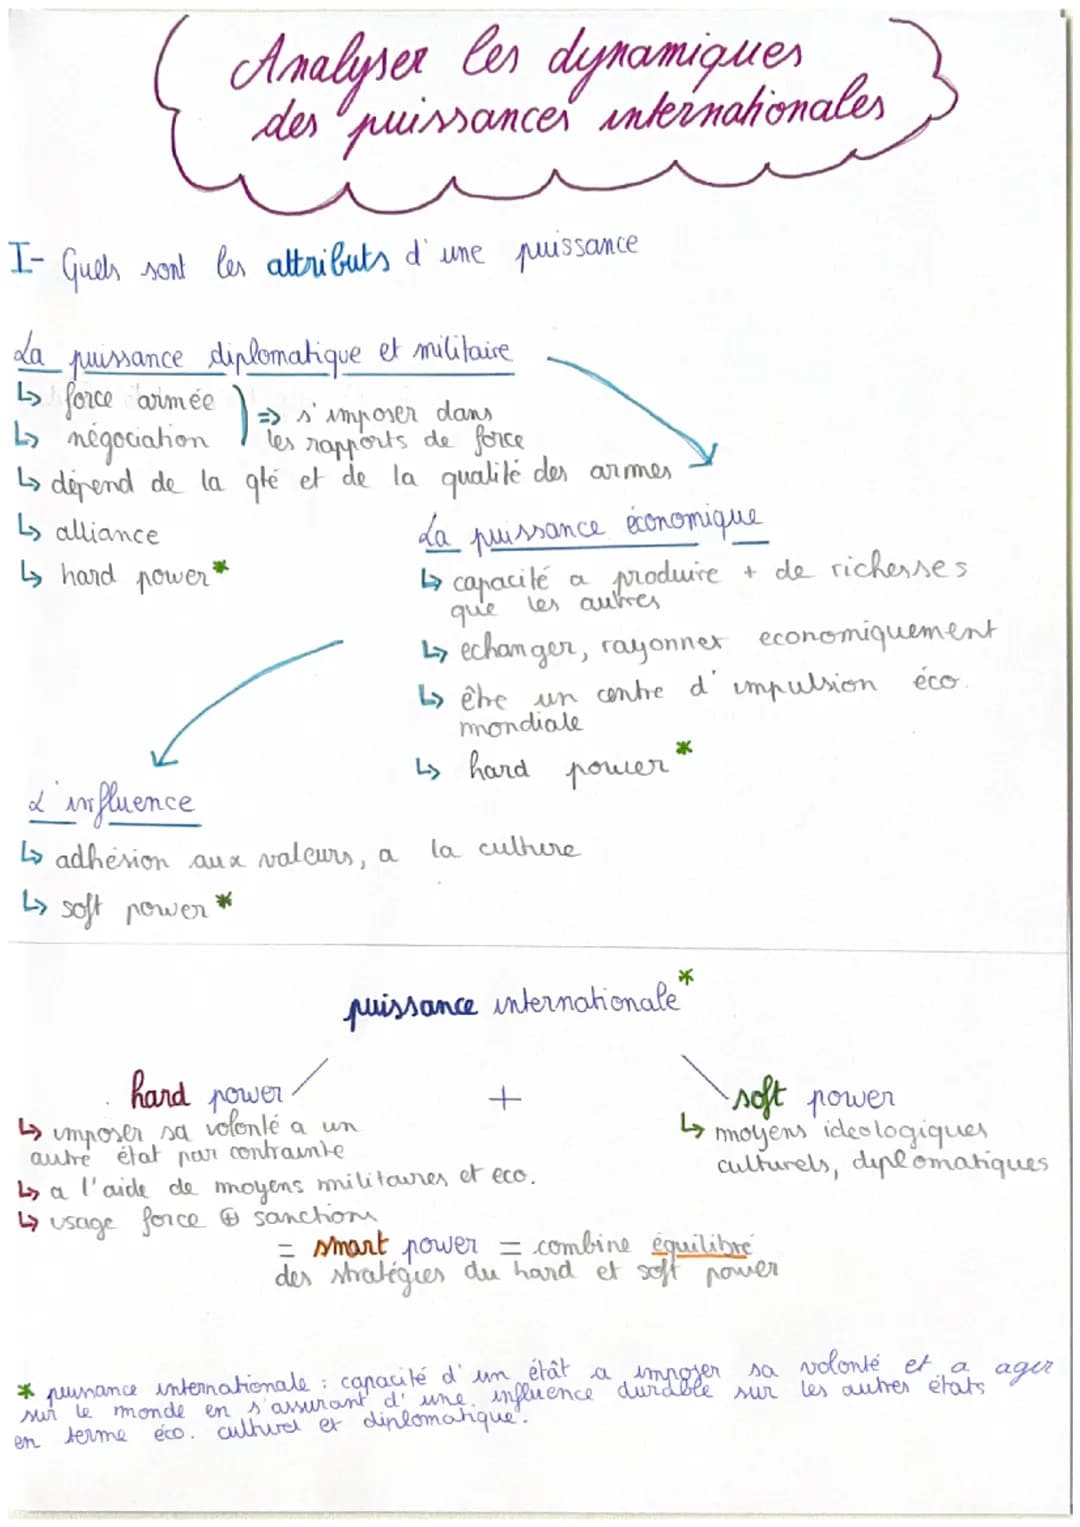 Analyser les dynamiques
des puissances internationales
I- Quels sont les attributs d'une puissance
La puissance diplomatique et militaire
↳ force armée
↳ négociation
=> s'imposer dans
les rapports de force
↳ dépend de la qté et de la qualité des armes
↳ alliance
↳ hard power*
La puissance économique
↳ capacité a produire + de richesses
que les autres
↳ echanger, rayonner economiquement
↳ être un centre d'impulsion éco.
mondiale
↳ hard power*
L'influence
↳ adhésion aux valeurs, a la culture
↳ soft power*
puissance internationale*
hard power
+
soft power
↳ imposer sa volonté a un
autre état par contrainte
↳ a l'aide de moyens militaires et eco.
↳ usage force ⊕ sanctions
↳ moyens ideologiques
culturels, diplomatiques
= smart power = combine équilibré
des stratégies du hard et soft power
* puissance internationale : capacité d'un étât a imposer sa volonté et a agir
sur le monde en s'assurant d'une influence durable sur les autres états
en terme éco. culturel et diplomatique.